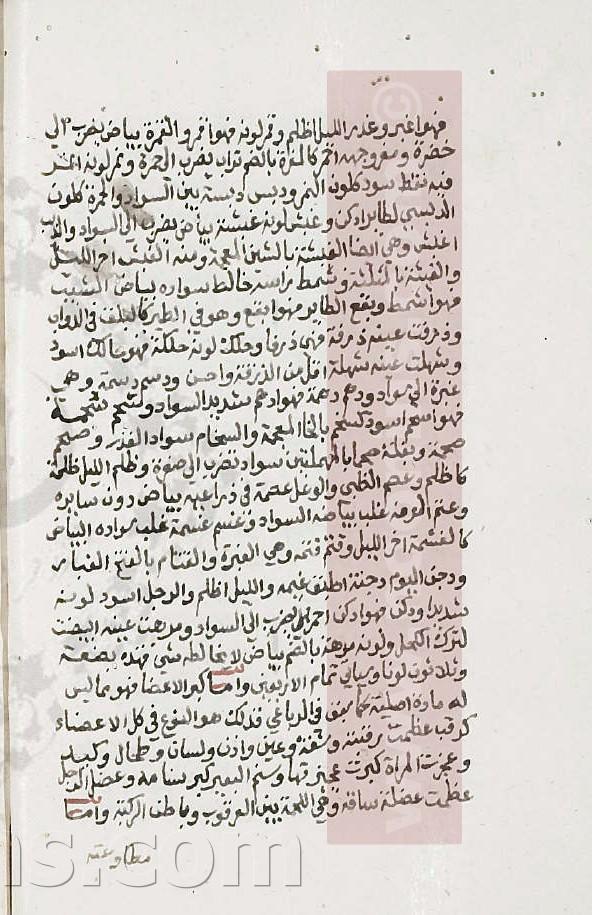 فهو اغبر وغدر الليل اظلم وقمر لونه فهو اقمر والقمرة بياض يضرب الي
خضرة ومغر وجهه احمر كالمغرة بالضم تراب يضرب الي حمرة ونمر لونه
فيه نقط سود كلون النمر ودبس دبسة بين السواد والحمرة كلون
الدبسي لطاير ادكن وغبش لونه غبشة بياض يضرب الي السواد
اغبش وهي ايضا الغبشة بالشين المعجمة ومنه الغبش اخر الليل
والغبثة بالمثلثة وشمط براسه خالط سواده بياض الشيب
فهو اشمط وبقع الطاير فهو ابقع وهو في الطير كالبلق في الدواب
وزرقت عينه زرقة فهي زرقا وحلك لونه حلكة فهو حالك اسود
وشهلت عينه شهلة اقل من الزرقة واحسن ودسم دسمة وهي
غبرة الي سواد ودهم دهمة فهو ادهم شديد السواد وسحم سحمة
فهو اسحم اسود كسخم بالخا المعجمة والسخام سواد القدر وصحم
صحمة وبقلة صحما بالمهملتين سواد يضرب الي صفرة وظلم الليل ظلمة
كاظلم وعصم الظبي والوعل عصمة في ذراعيه بياض دون سايره
وغثم العرف غلب بياضه السواد وغسم غسمة غلب سواده البياض
كالغسمة اخر الليل وقتم قتمة وهي الغبرة والقتام بالفتح الغبار
ودجن اليوم دجنة اطبق غيمه والليل اظلم والرجل اسود لونه
شديدا ودكن فهو ادكن احمر يضرب الي السواد ومرهت عينه ابيضت
لترك الكحل ولونه مرهة بالضم بياض لا يخالطه شي فهذه بضعة
وثلاثون لونا وسياتي تمام الاربعين واما كبر الاعضا فهو مما ليس
له مادة اصلية كما سبق في الرباعي فذلك هو النوع في كل الاعضاء
كرقب عظمت رقبته وشفة وعين واذن ولسان وطحال وكبد
وعجزت المراة كبرت عجيزتها وسنم البعير كبر سنامه وعضل الرجل
عظمت عضلة ساقه وهي اللحمة بين العرقوب وباطن الركبة واما
مطاوعة
ns.com